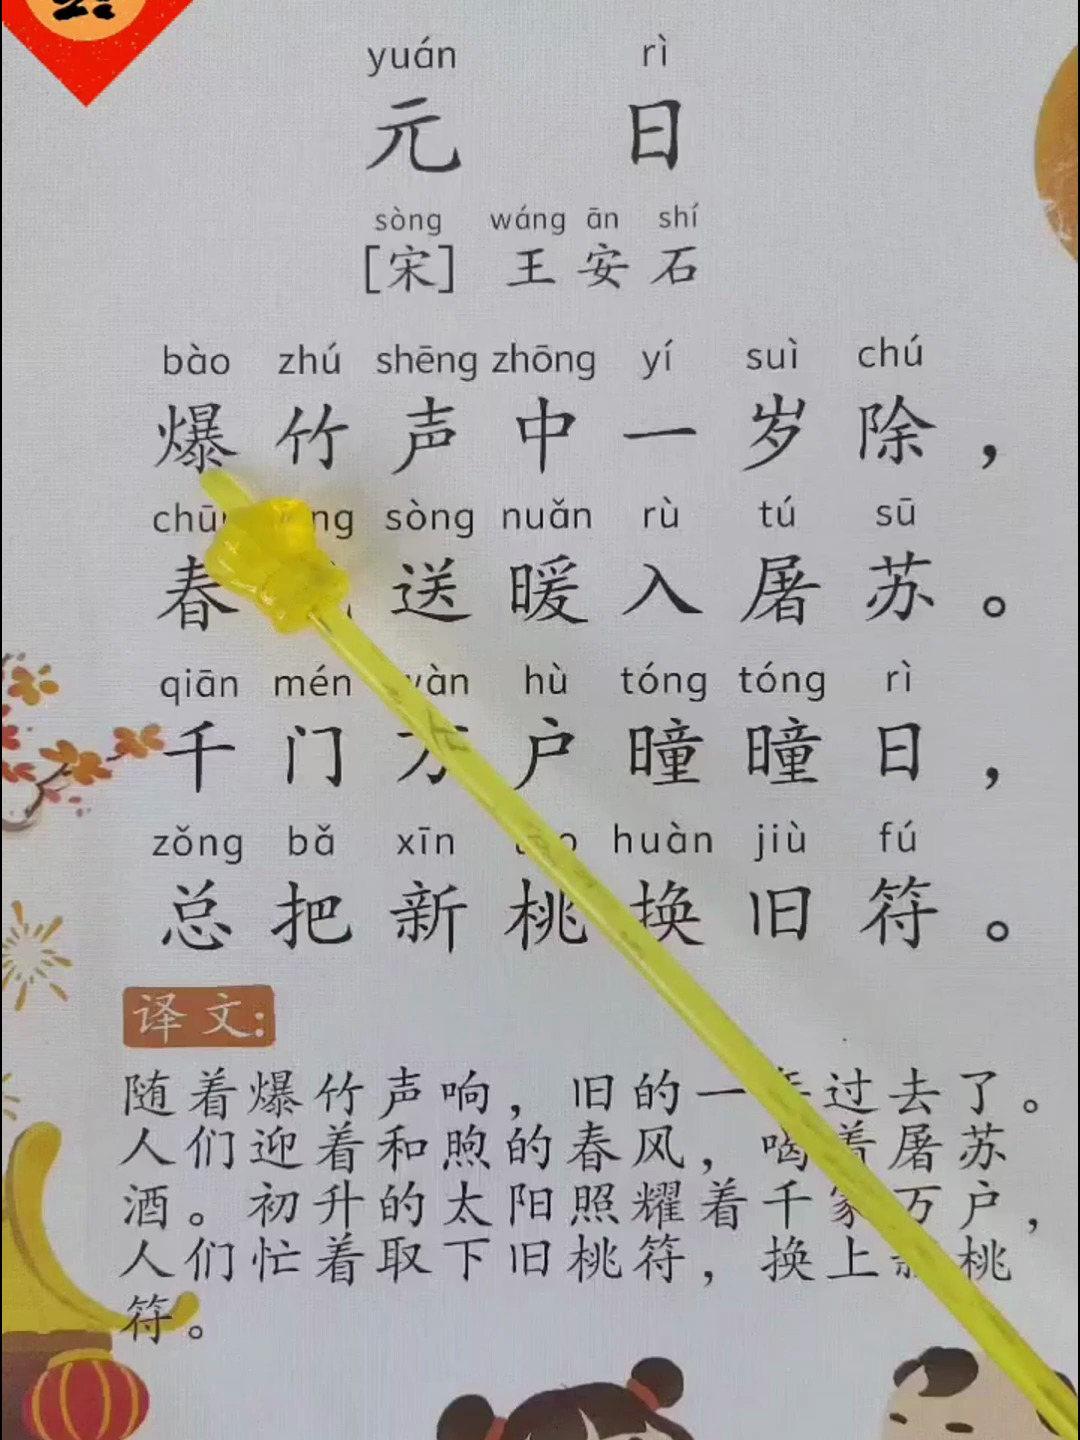 yuán rì
元 日
sòng wáng ān shí
[宋] 王安石
bào zhú shēng zhōng yí suì chú
爆竹声中一岁除，
sòng nuǎn rù tú sū
春 送暖入屠苏。
qiān mén wàn hù tóng tóng rì
千门万户曈曈日，
zǒng bǎ xīn huàn jiù fú
总把新桃换旧符。
译文:
随着爆竹声响，旧的一年过去了。
人们迎着和煦的春风，喝着屠苏
酒。初升的太阳照耀着千家万户，
人们忙着取下旧桃符，换上新桃
符。